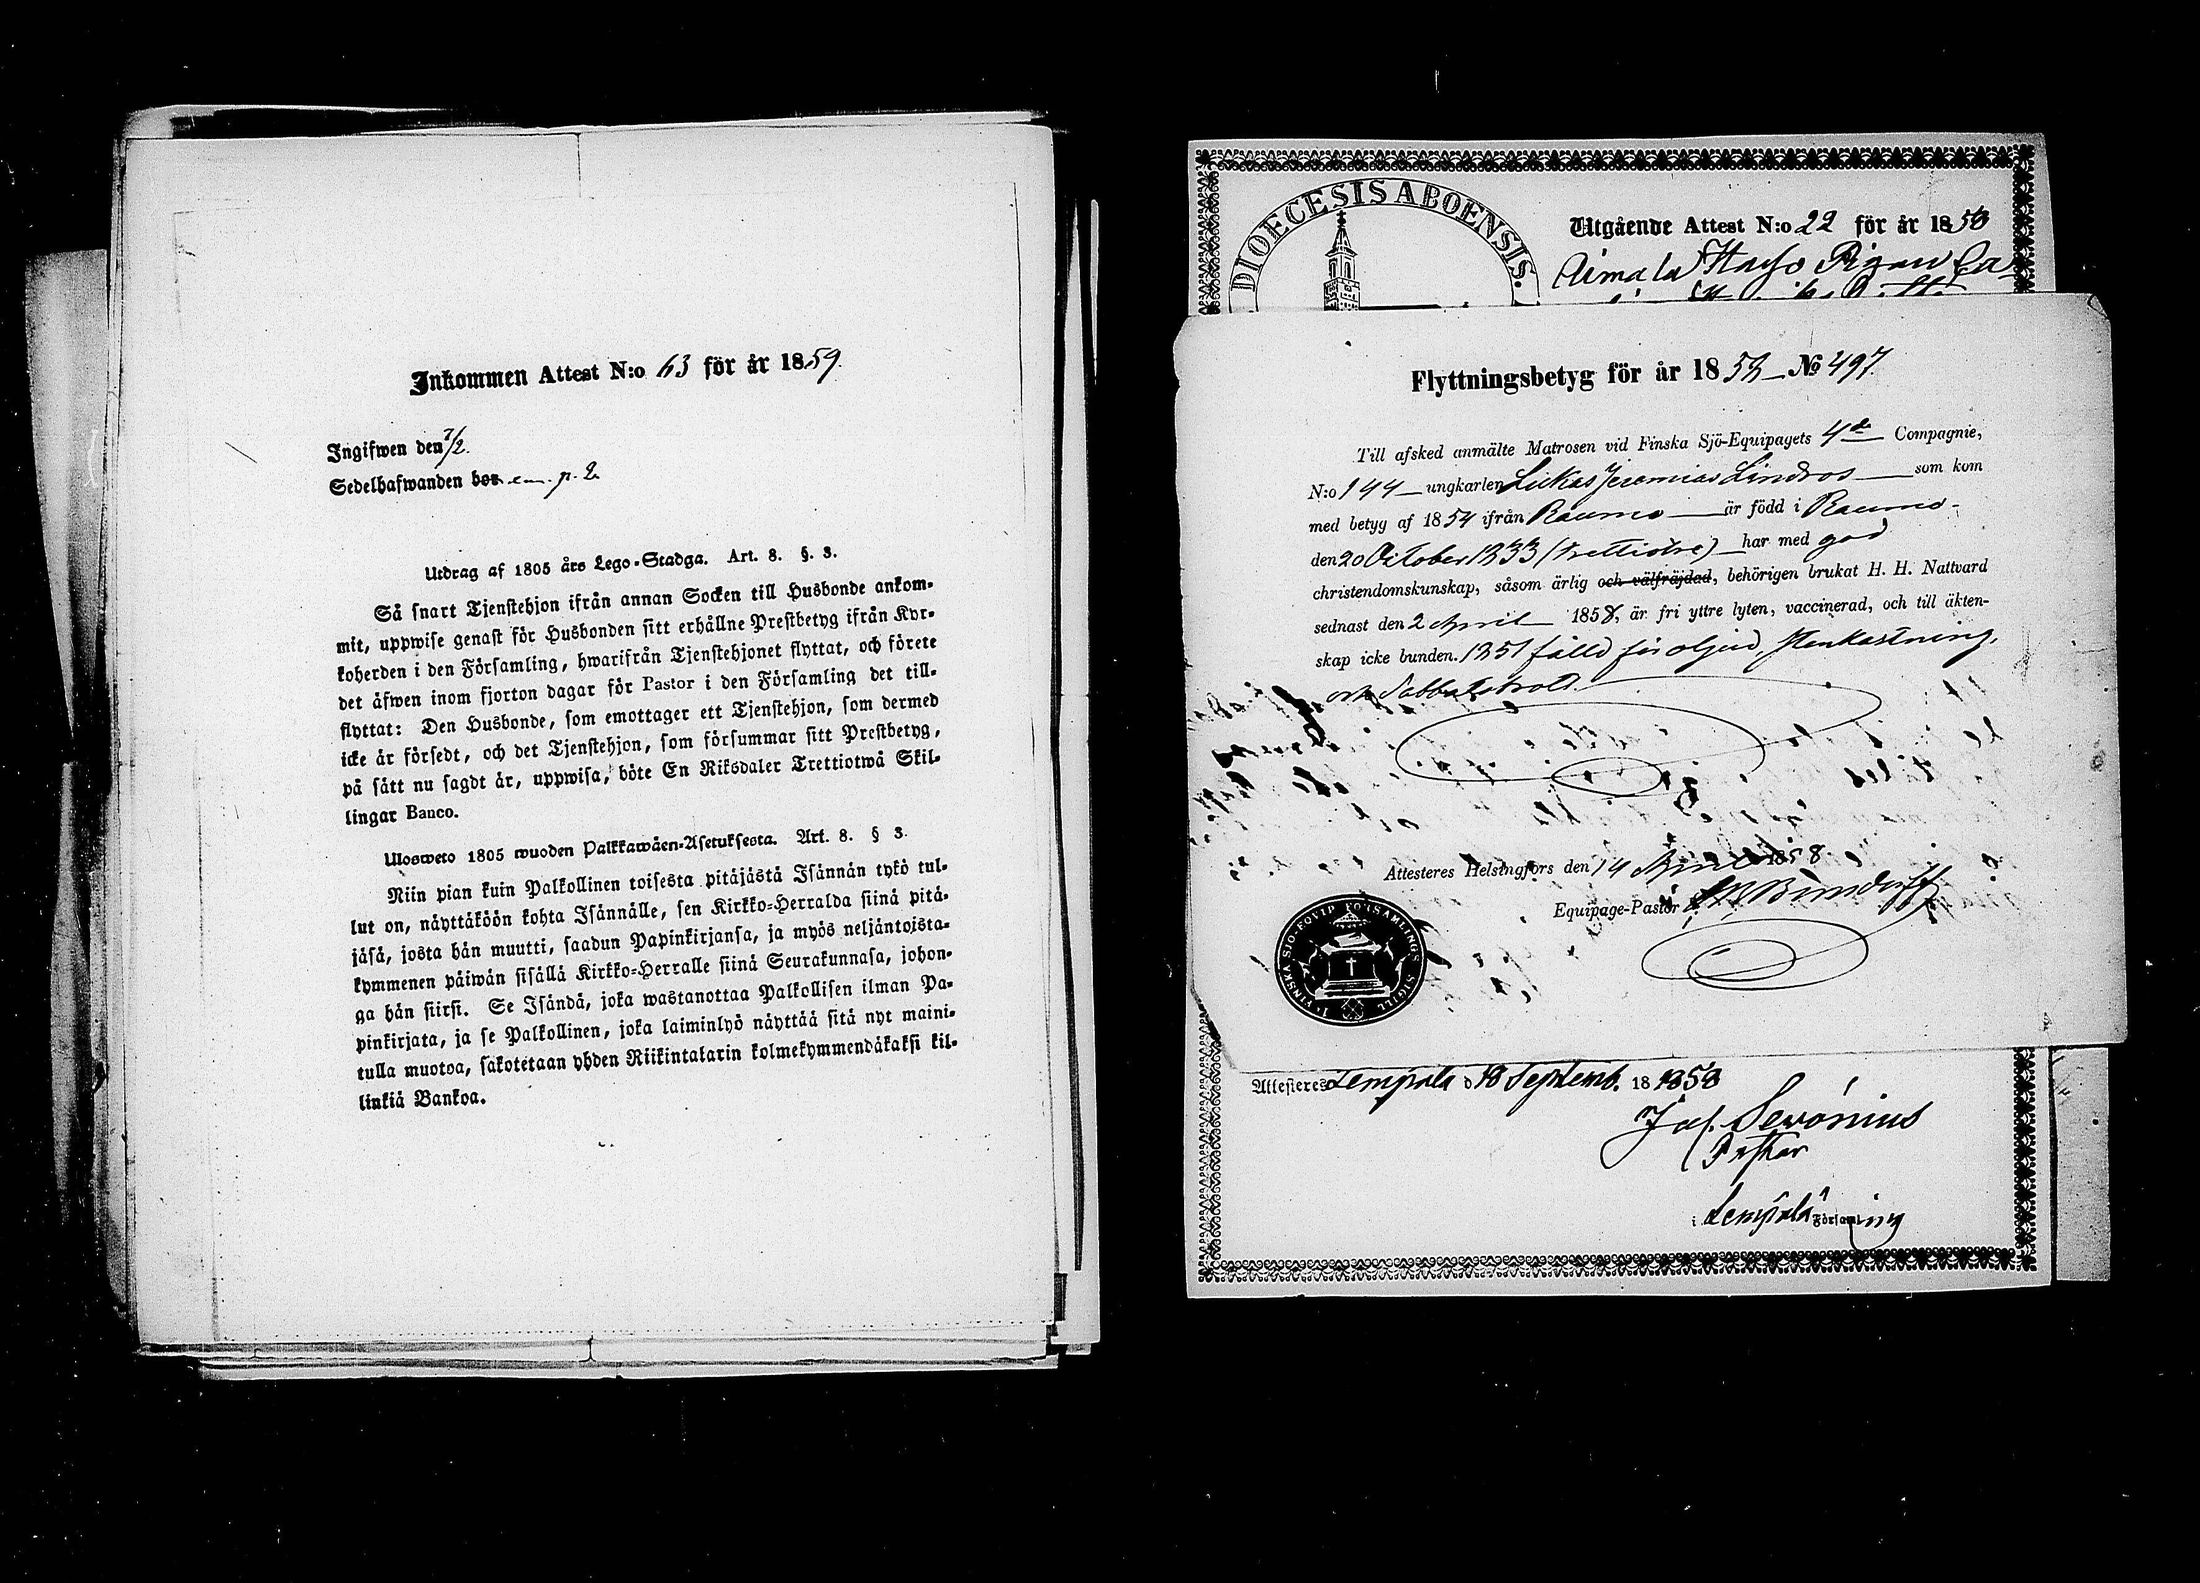 Inkommen Attest N:o 63 för år 1859.
Ingifwen den 7/2.
Sedelhafwanden bor
Utdrag af 1805 års Lego-Stadga. Art. 8. §. 3.
Så snart Tjenstehjon ifrån annan Socken till Husbonde ankom-
mit, uppwise genast för Husbonden sitt erhållne Prestbetyg ifrån Kyr-
koherden i den Församling, hwarifrån Tjenstehjonet flyttat, och förete
det äfwen inom fjorton dagar för Pastor i den Församling det till-
flyttat: Den Husbonde, som emottager ett Tjenstehjon, som dermed
icke är försedt, och det Tjenstehjon, som försummar sitt Prestbetyg,
på sätt nu sagdt är, uppwisa, böte En Riksdaler Trettiotwå Skil-
lingar Banco.
Ulosweto 1805 wuoden Palkkawäen-Asetuksesta. Art. 8. § 3.
Niin pian kuin Palkollinen toisesta pitäjästä Isännän tykö tul-
lut on, näyttäköön kohta Isännälle, sen Kirkko-Herralda siinä pitä-
jäsä, josta hän muutti, saadun Papinkirjansa, ja myös neljäntoista-
kymmenen päiwän sisällä Kirkko-Herralle siinä Seurakunnasa, johon-
ga hän siirsi. Se Isändä, joka wastanottaa Palkollisen ilman Pa-
pinkirjata, ja se Palkollinen, joka laiminlyö näyttää sitä nyt maini-
tulla muotoa, sakotetaan yhden Riikintalarin kolmekymmendäkaksi kil-
linkiä Bankoa.
DIOECESIS ABOENSIS.
Utgående Attest N:o 22 för år 1858
Pigan
Flyttningsbetyg för år 1858 No 497
Till afsked anmälte Matrosen vid Finska Sjö-Equipagets 4de Compagnie,
N:o 144 ungkarlen Lukas Jeremias Lindros som kom
med betyg af 1854 ifrån Raumo är född i Raumo
den 20 October 1833 (trettiotre) har med god
christendomskunskap, såsom ärlig och välfräjdad, behörigen brukat H. H. Nattvard
sednast den 2 April 1858, är fri yttre lyten, vaccinerad, och till äkten-
skap icke bunden. 1851 fälld för oljud, stenkastning,
och Sabbatsbrott.
Attesteres Helsingfors den 14 April 1858.
Equipage-Pastor
FINSKA SJÖ-EQVIP. FÖRSAMLINGS SIGILL
Attesteres Lempäla d 18 Septemb. 18 1858
Jas. Servonius
Pastor
i Lempälä Församling